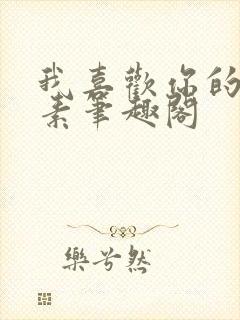 我喜歡你的
素筆趣閣
樂兮然